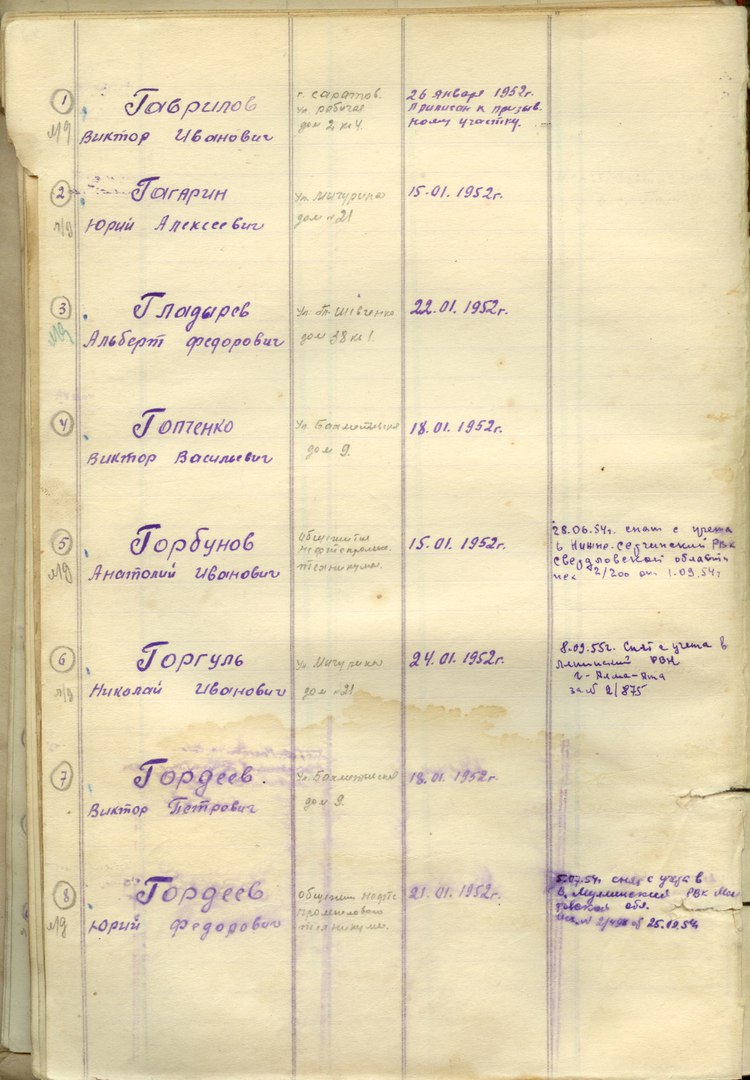 1
Гаврилов
Виктор Иванович
г. Саратов.
ул. рабочая
дом 2 кв 4.
26 января 1952г.
Приписан к призыв.
ному участку.
2
Гагарин
Юрий Алексеевич
Ул. Мичурина
дом №21
15.01.1952г.
3
Гладырев
Альберт Федорович
Ул. Шевченко
дом 38 кв 1.
22.01.1952г.
4
Гопченко
Виктор Васильевич
Ул. Бахметьевская
дом 9.
18.01.1952г.
5
Горбунов
Анатолий Иванович
Общежитие
нефтепромысл.
техникума.
15.01.1952г.
28.06.54г. снят с учета
в РВК
Свердловской области
исх 2/200 от 1.09.54г
6
Горгуль
Николай Иванович
Ул. Мичурина
дом №21
24.01.1952г.
8.09.55г. Снят с учета в
Ленинский РВК
г-Алма-Ата
за № 2/875
7
Гордеев.
Виктор Петрович
Ул. Бахметьевская
дом 9.
18.01.1952г.
8
мд
Гордеев
Юрий Федорович
общежит нефте
промыслового
техникума.
21.01.1952г.
5.07.54г. снят с учета в
РВК
обл.
25.09.54